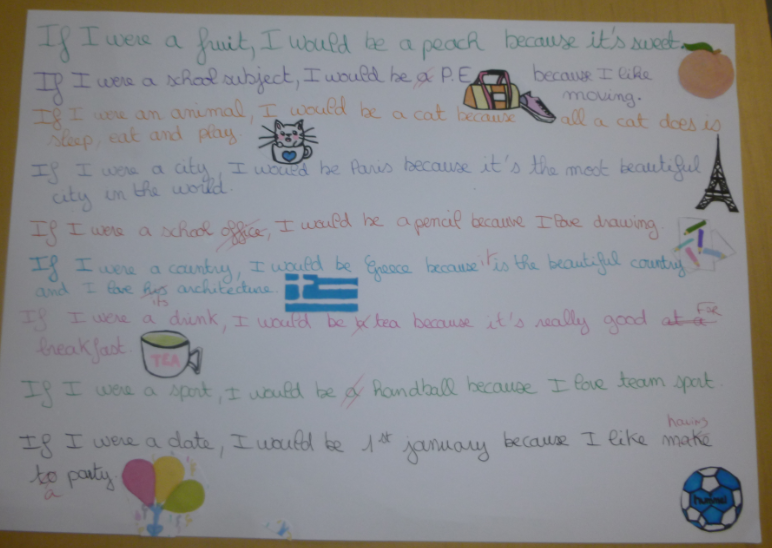 If I were a fruit, I would be a peach because it's sweet.
If I were a school subject, I would be a P.E because I like
moving.
If I were an animal, I would be a cat because all a cat does is
sleep, eat and play.
If I were a city, I would be Paris because it's the most beautiful
city in the world.
If I were a school office, I would be a pencil because I love drawing.
If I were a country, I would be Greece because it is the beautiful country
and I love his architecture.
its
If I were a drink, I would be a tea because it's really good at a for
breakfast.
TEA
If I were a sport, I would be a handball because I love team sport.
having
If I were a date, I would be 1st january because I like make
to party.
a
hummel